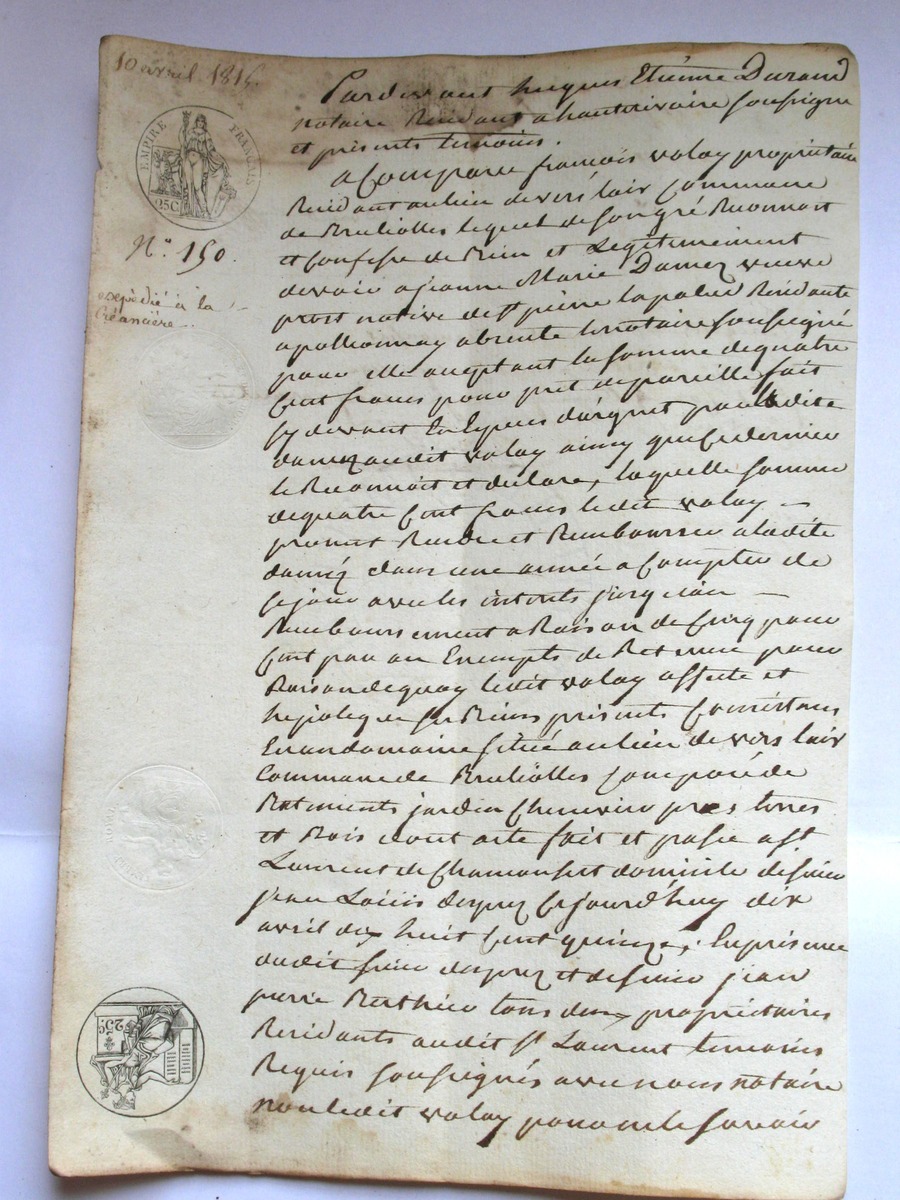 10 avril 1815.
EMPIRE FRANÇAIS
25C
N.° 150.
expèdié à la
Créancière.
Pardevant hugues Etiénne Durand
notaire Residant a hauterivoire soussigne
et présents temoins.
a Comparu francois valay propriétaire
Residant au lieu de vers lair Commune
de Brulliolles lequel de son gré Reconnoit
et Confesse de Bien et Legitimement
devoir a jeanne Marie Damez veuve
prost native de St pierre lapalud Residante
apollionnay absente le notaire soussigné
pour elle aceptant la somme de quatre
Cent francs pour pret de pareille fait
cy devant En Especes d'argent par ladite
damez audit valay ainsy que ce dernier
le Reconnoit et declare, laquelle somme
de quatre Cent francs ledit valay
promet Rendre et Rembourser a ladite
daméz dans une année a Compter de
ce jour avec les interets jusqu'au
Remboursement a Raison de Cinq pour
Cent par an Exempts de Retenue pour
Raison de quoy ledit valay affecte et
hipoteque ses Biens présents Consistans
En un domaine situé au lieu de vers lair
Commune de Brulliolles Composé de
Batiments jardin Chenevier pres terres
et Bois dont acte fait et passé a St
Laurent de Chamousset domicile de sieur
jean Loüis dupuy Ce jourd'huy dix
avril dix huit Cent quinze, En présence
dudit sieur et de sieur jean
pierre Berthier tous deux propriétaires
Residants audit St Laurent temoins
Requis soussignés avec nous notaire
non ledit valay pour ne le savoir
25C